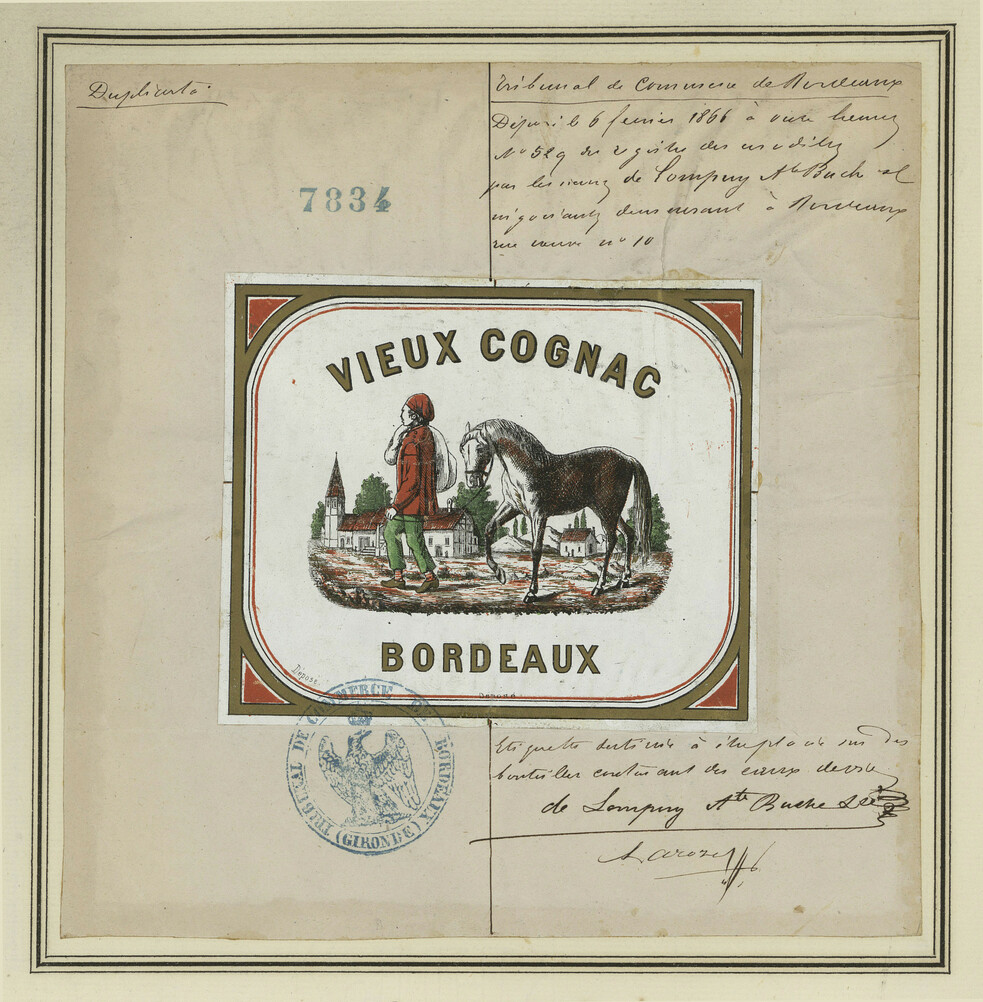 Duplicata
Tribunal de Commerce de Bordeaux
Déposé le 6 février 1866 à onze heures
No 529 du registre des modèles
par les sieurs de Lompuy Ate Buch et
négociants demeurant à Bordeaux
rue neuve no 10
7834
VIEUX COGNAC
BORDEAUX
Déposé
Déposé
TRIBUNAL DE COMMERCE DE BORDEAUX
(GIRONDE)
Etiquette destinée à être placée sur des
bouteilles contenant des eaux de vie
de Lompuy Ate Buche